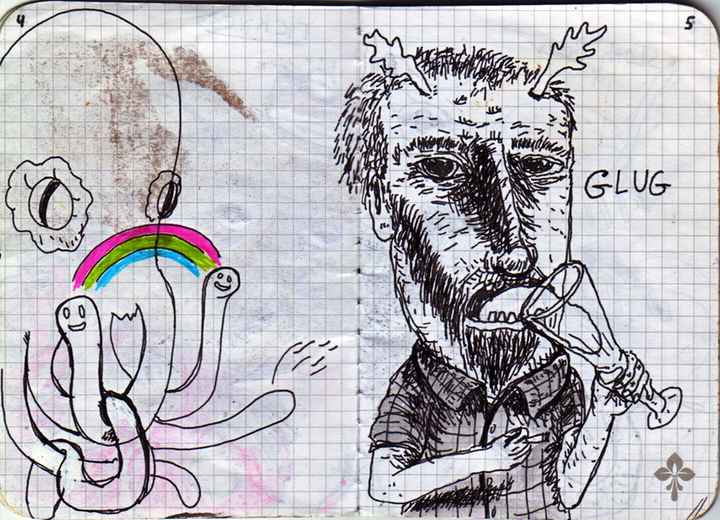 4
5
GLUG